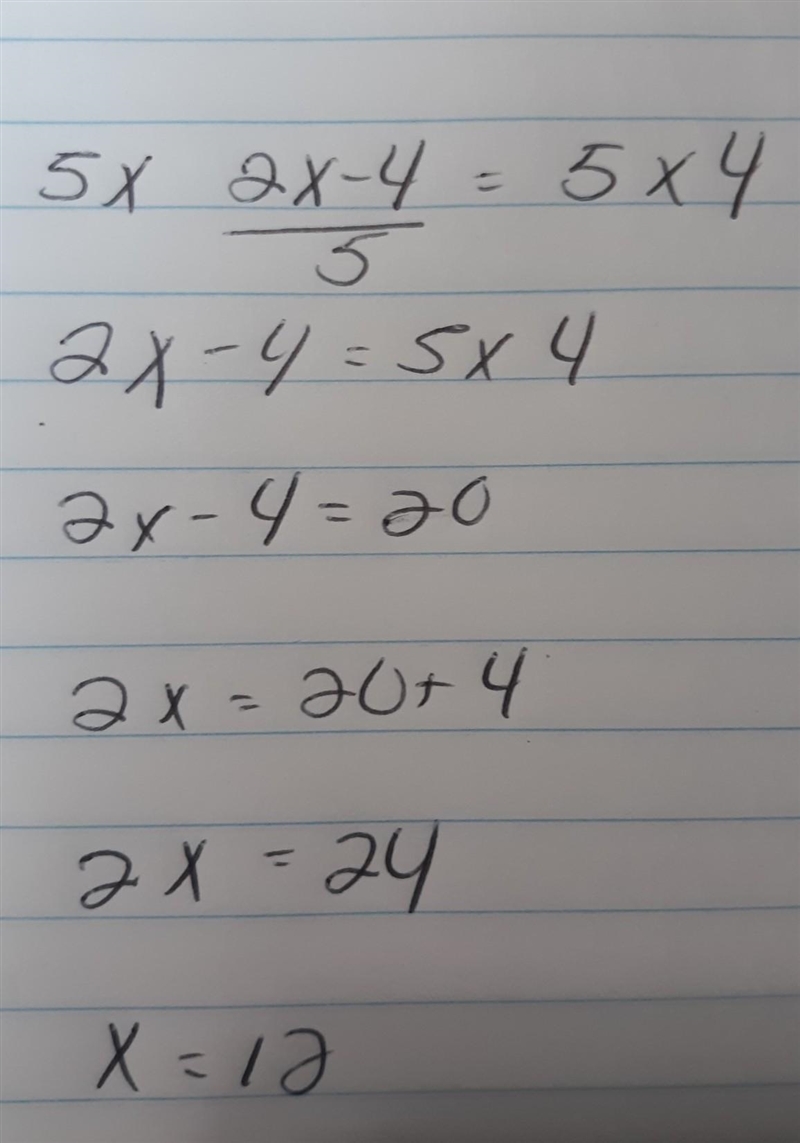 5x (2x-4)/5 = 5x4
2x-4=5x4
2x-4=20
2x=20+4
2x=24
x=12